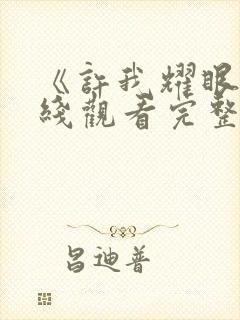 《許我耀眼
綫觀看完整
昌迪普